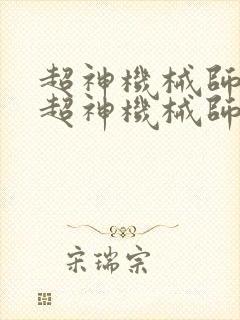 超神機械師
超神機械師
宋瑞宗